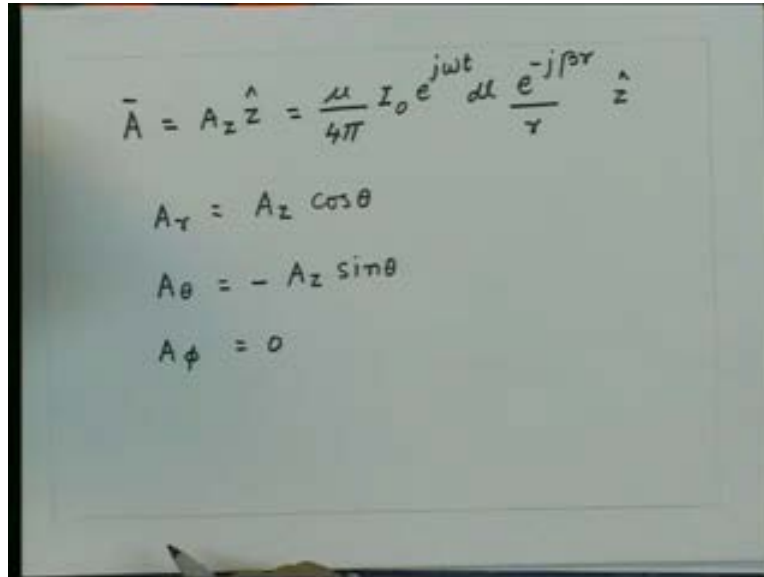 Ā = A_z ẑ = μ/4π I₀ e^{jωt} dl e^{-jβr}/r ẑ
A_r = A_z cosθ
A_θ = - A_z sinθ
A_ϕ = 0